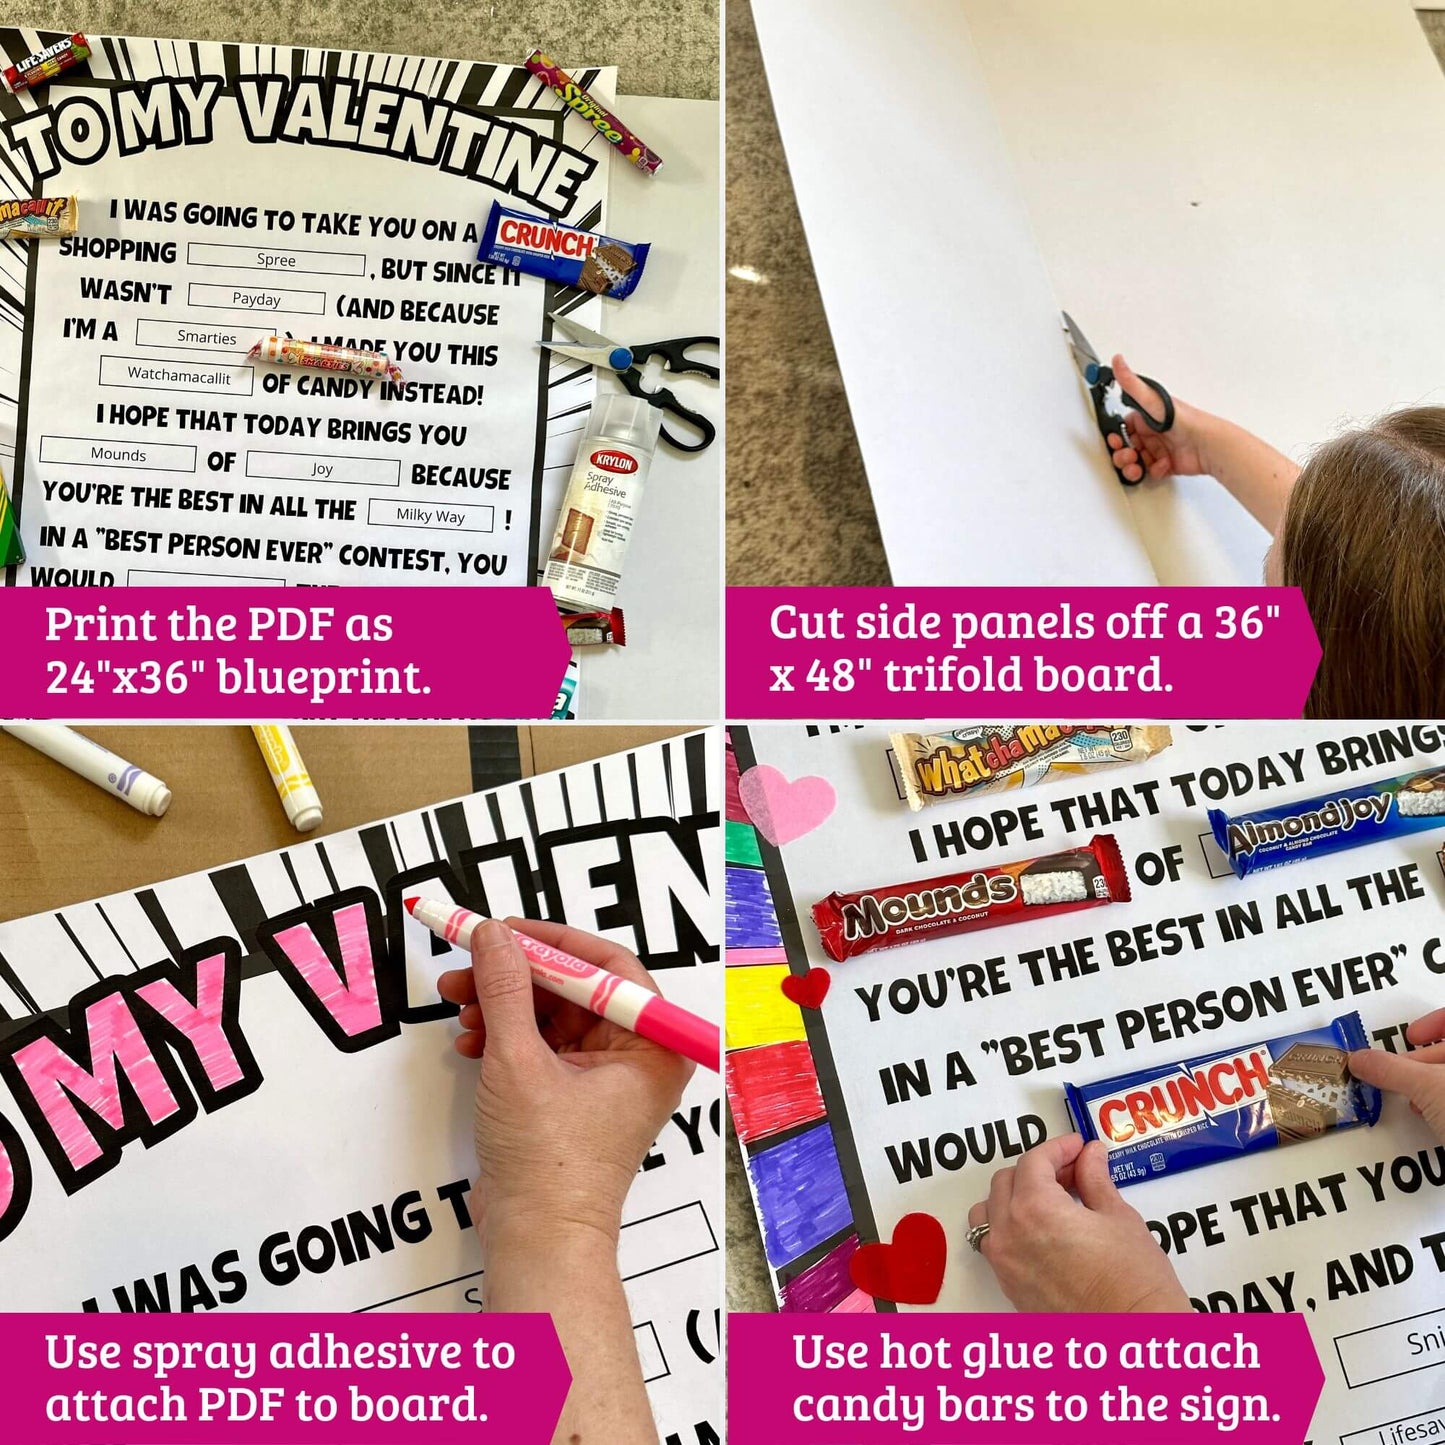 LIFE SAVERS
Original
Spree
TO MY VALENTINE
I WAS GOING TO TAKE YOU ON A
CRUNCH
SHOPPING Spree , BUT SINCE IT
WASN'T Payday (AND BECAUSE
I'M A Smarties ) I MADE YOU THIS
SMARTIES
Watchamacallit OF CANDY INSTEAD!
I HOPE THAT TODAY BRINGS YOU
Mounds OF Joy BECAUSE
YOU'RE THE BEST IN ALL THE Milky Way !
IN A "BEST PERSON EVER" CONTEST, YOU
WOULD
KRYLON
Spray
Adhesive
Print the PDF as
24"x36" blueprint.
Cut side panels off a 36"
x 48" trifold board.
MY VALEN
crayola
I WAS GOING T
Use spray adhesive to
attach PDF to board.
Whatchamacallit
230
I HOPE THAT TODAY BRINGS
Almond Joy
COCONUT & ALMOND CHOCOLATE
CANDY BAR
Mounds
DARK CHOCOLATE & COCONUT
230
OF
YOU'RE THE BEST IN ALL THE
IN A "BEST PERSON EVER" C
WOULD
CRUNCH
CREAMY MILK CHOCOLATE WITH CRISPED RICE
NET WT
1.55 OZ (43.9g)
OPE THAT YOU
ODAY, AND T
Sni
Lifesav
Use hot glue to attach
candy bars to the sign.